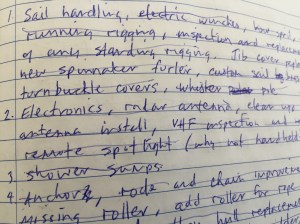 1. Sail handling, electric winches, boom
running rigging, inspection and replacement
of any standing rigging. Jib cover
new spinnaker furler, custom sail bag
turnbuckle covers, whisker pole
2. Electronics, radar antenna,
antenna install, VHF inspection and
remote spotlight (why not handheld
3. shower sumps
4. Anchors, rode and chain improvement
missing roller, add roller for rope
had replacement